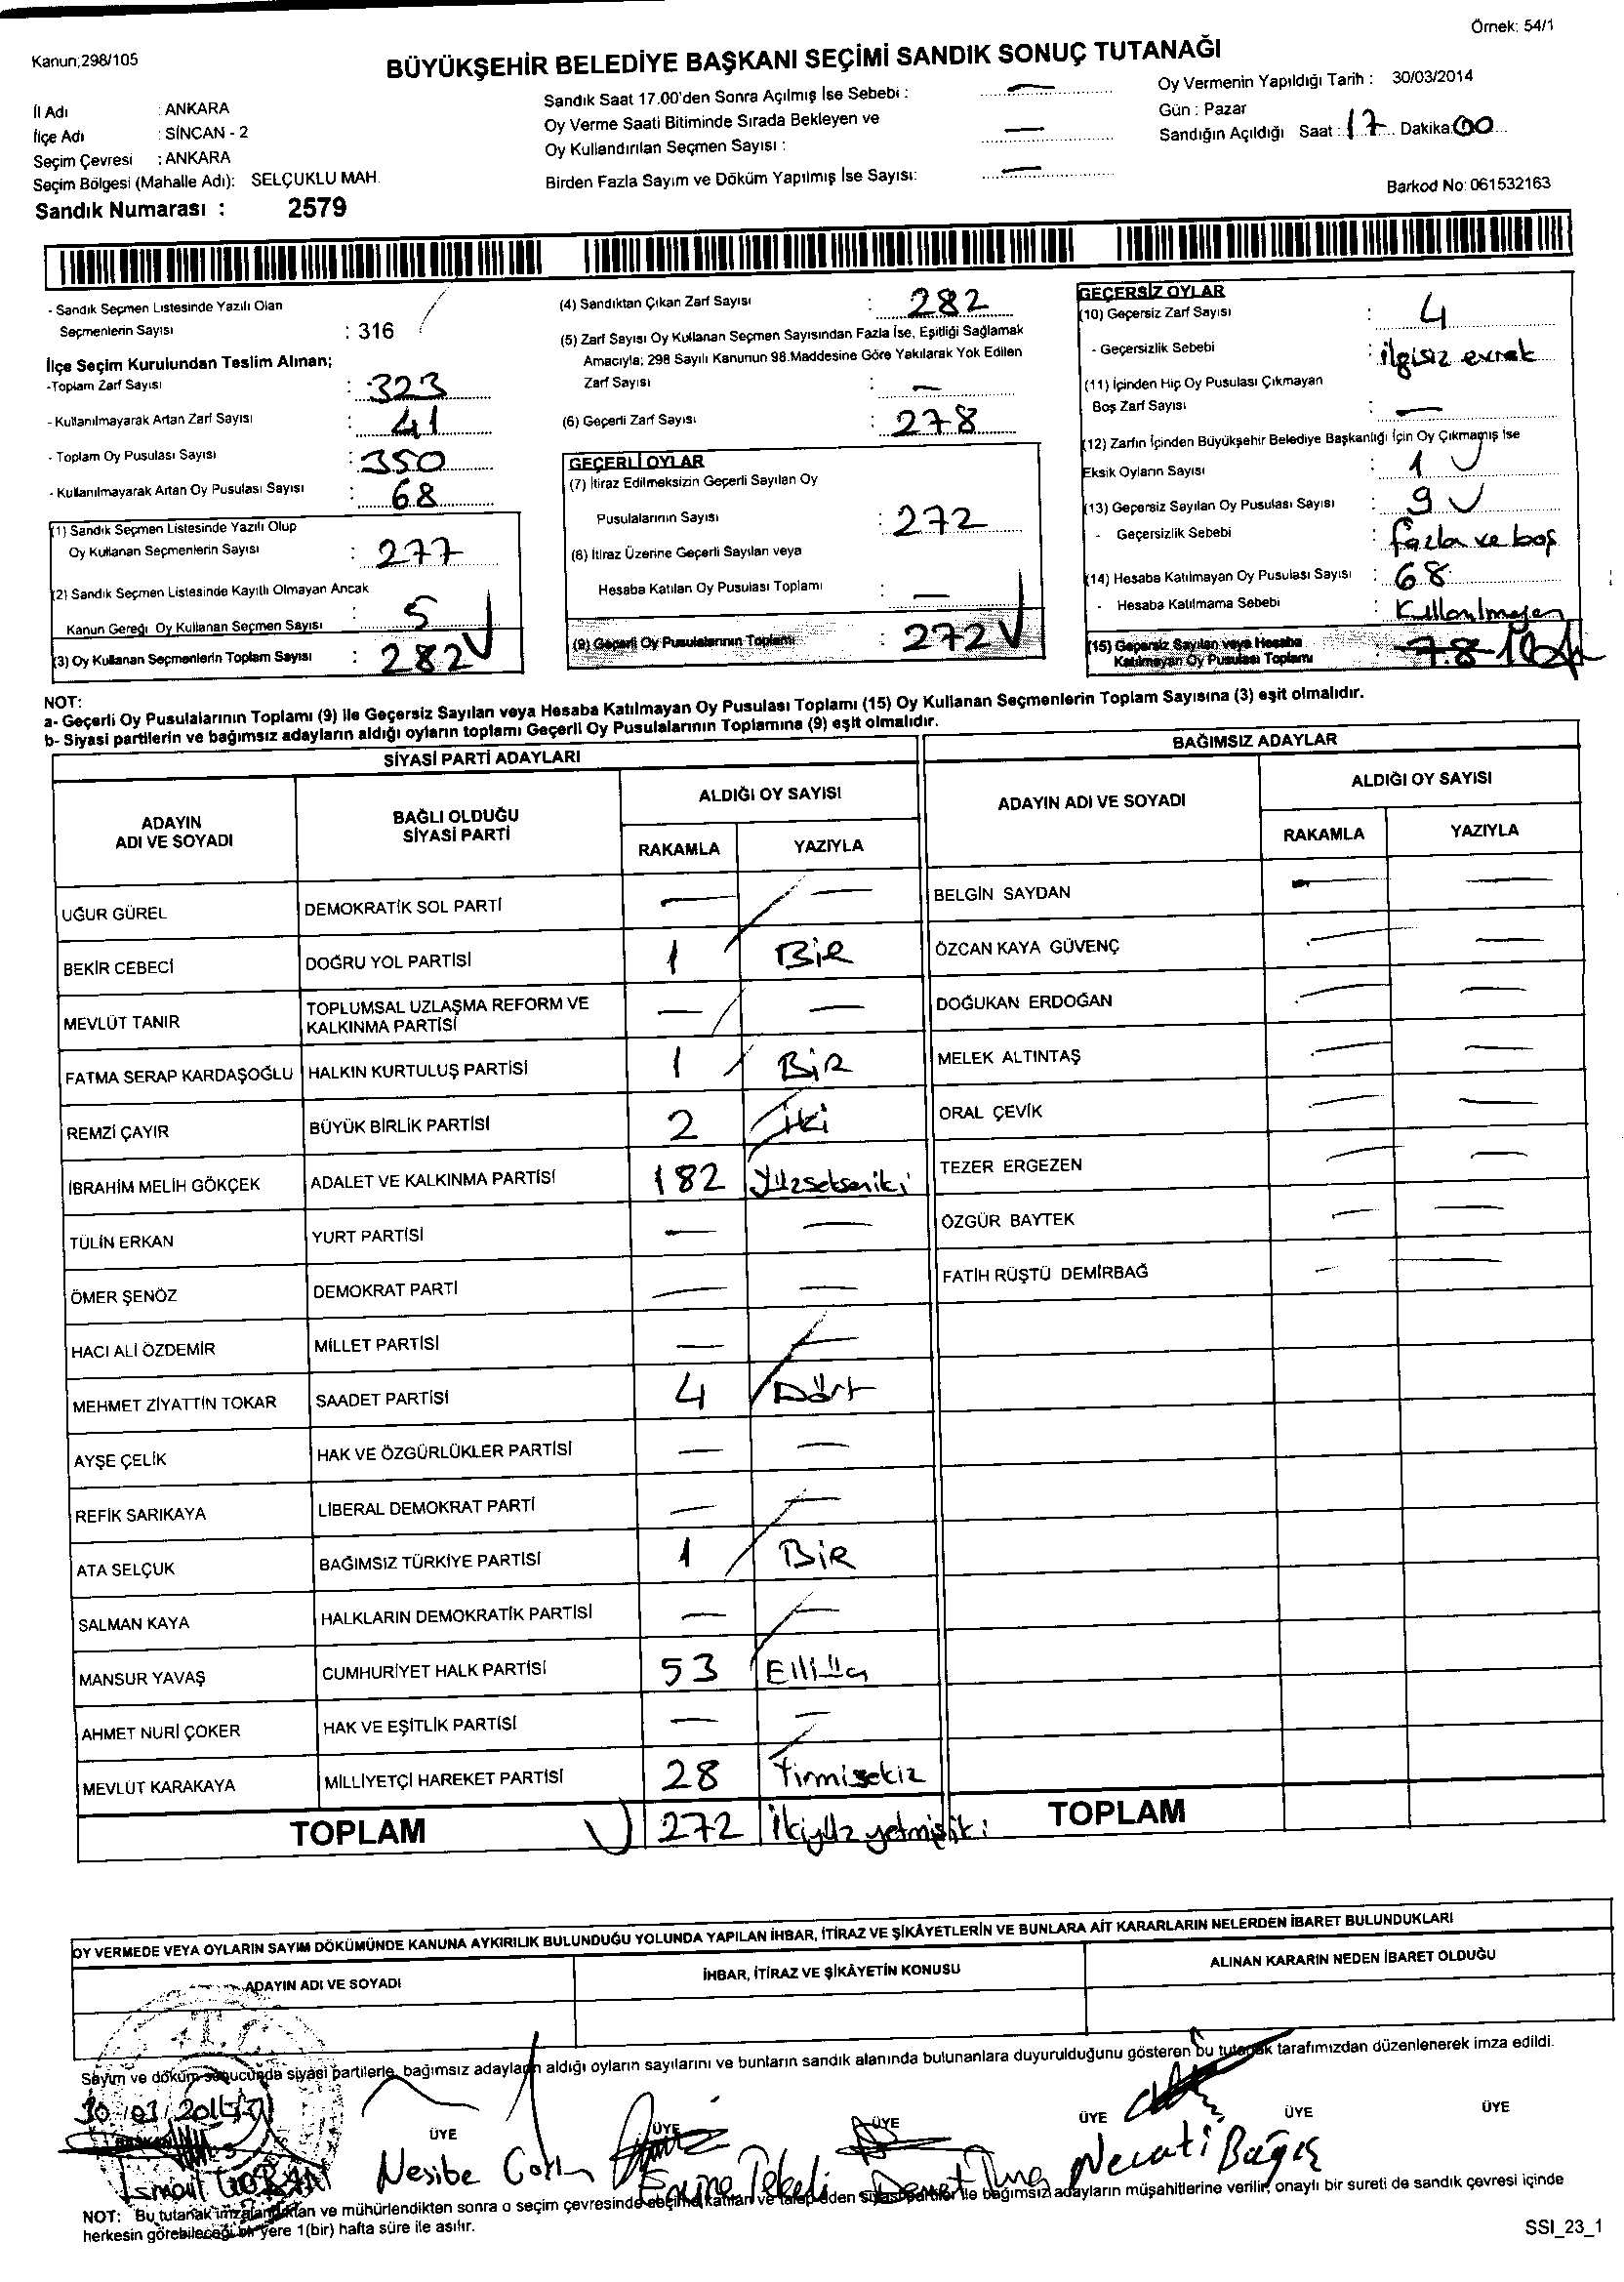 Örnek: 54/1
Kanun;298/105
BÜYÜKŞEHİR BELEDİYE BAŞKANI SEÇİMİ SANDIK SONUÇ TUTANAĞI
İl Adı : ANKARA
İlçe Adı : SİNCAN - 2
Seçim Çevresi : ANKARA
Seçim Bölgesi (Mahalle Adı): SELÇUKLU MAH.
Sandık Numarası : 2579
Sandık Saat 17.00'den Sonra Açılmış İse Sebebi : —
Oy Verme Saati Bitiminde Sırada Bekleyen ve
Oy Kullandırılan Seçmen Sayısı : —
Birden Fazla Sayım ve Döküm Yapılmış İse Sayısı: —
Oy Vermenin Yapıldığı Tarih : 30/03/2014
Gün : Pazar
Sandığın Açıldığı Saat : 17 Dakika: 00
Barkod No: 061532163
- Sandık Seçmen Listesinde Yazılı Olan
Seçmenlerin Sayısı : 316
İlçe Seçim Kurulundan Teslim Alınan;
-Toplam Zarf Sayısı : 323
- Kullanılmayarak Artan Zarf Sayısı : 41
- Toplam Oy Pusulası Sayısı : 350
- Kullanılmayarak Artan Oy Pusulası Sayısı : 68
(1) Sandık Seçmen Listesinde Yazılı Olup
Oy Kullanan Seçmenlerin Sayısı : 277
(2) Sandık Seçmen Listesinde Kayıtlı Olmayan Ancak
Kanun Gereği Oy Kullanan Seçmen Sayısı : 5
(3) Oy Kullanan Seçmenlerin Toplam Sayısı : 282
(4) Sandıktan Çıkan Zarf Sayısı : 282
(5) Zarf Sayısı Oy Kullanan Seçmen Sayısından Fazla İse, Eşitliği Sağlamak
Amacıyla; 298 Sayılı Kanunun 98.Maddesine Göre Yakılarak Yok Edilen
Zarf Sayısı : —
(6) Geçerli Zarf Sayısı : 278
GEÇERLİ OYLAR
(7) İtiraz Edilmeksizin Geçerli Sayılan Oy
Pusulalarının Sayısı : 272
(8) İtiraz Üzerine Geçerli Sayılan veya
Hesaba Katılan Oy Pusulası Toplamı : —
(9) Geçerli Oy Pusulalarının Toplamı : 272
GEÇERSİZ OYLAR
(10) Geçersiz Zarf Sayısı : 4
- Geçersizlik Sebebi : ilgisiz evrak
(11) İçinden Hiç Oy Pusulası Çıkmayan
Boş Zarf Sayısı : —
(12) Zarfın İçinden Büyükşehir Belediye Başkanlığı İçin Oy Çıkmamış İse
Eksik Oyların Sayısı : 1
(13) Geçersiz Sayılan Oy Pusulası Sayısı : 9
- Geçersizlik Sebebi : fazla ve boş
(14) Hesaba Katılmayan Oy Pusulası Sayısı : 68
- Hesaba Katılmama Sebebi : Kullanılmayan
(15) Geçersiz Sayılan veya Hesaba
Katılmayan Oy Pusulası Toplamı : 78 10
NOT:
a- Geçerli Oy Pusulalarının Toplamı (9) ile Geçersiz Sayılan veya Hesaba Katılmayan Oy Pusulası Toplamı (15) Oy Kullanan Seçmenlerin Toplam Sayısına (3) eşit olmalıdır.
b- Siyasi partilerin ve bağımsız adayların aldığı oyların toplamı Geçerli Oy Pusulalarının Toplamına (9) eşit olmalıdır.
SİYASİ PARTİ ADAYLARI
ADAYIN ADI VE SOYADI
BAĞLI OLDUĞU SİYASİ PARTİ
ALDIĞI OY SAYISI
RAKAMLA YAZIYLA
UĞUR GÜREL DEMOKRATİK SOL PARTİ — —
BEKİR CEBECİ DOĞRU YOL PARTİSİ 1 Bir
MEVLÜT TANIR TOPLUMSAL UZLAŞMA REFORM VE KALKINMA PARTİSİ — —
FATMA SERAP KARDAŞOĞLU HALKIN KURTULUŞ PARTİSİ 1 Bir
REMZİ ÇAYIR BÜYÜK BİRLİK PARTİSİ 2 İki
İBRAHİM MELİH GÖKÇEK ADALET VE KALKINMA PARTİSİ 182 Yüzsekseniki
TÜLİN ERKAN YURT PARTİSİ — —
ÖMER ŞENÖZ DEMOKRAT PARTİ — —
HACI ALİ ÖZDEMİR MİLLET PARTİSİ — —
MEHMET ZİYATTİN TOKAR SAADET PARTİSİ 4 Dört
AYŞE ÇELİK HAK VE ÖZGÜRLÜKLER PARTİSİ — —
REFİK SARIKAYA LİBERAL DEMOKRAT PARTİ — —
ATA SELÇUK BAĞIMSIZ TÜRKİYE PARTİSİ 1 Bir
SALMAN KAYA HALKLARIN DEMOKRATİK PARTİSİ — —
MANSUR YAVAŞ CUMHURİYET HALK PARTİSİ 53 Elliüç
AHMET NURİ ÇOKER HAK VE EŞİTLİK PARTİSİ — —
MEVLÜT KARAKAYA MİLLİYETÇİ HAREKET PARTİSİ 28 Yirmisekiz
TOPLAM 272 İkiyüzyetmişiki
BAĞIMSIZ ADAYLAR
ADAYIN ADI VE SOYADI
ALDIĞI OY SAYISI
RAKAMLA YAZIYLA
BELGİN SAYDAN — —
ÖZCAN KAYA GÜVENÇ — —
DOĞUKAN ERDOĞAN — —
MELEK ALTINTAŞ — —
ORAL ÇEVİK — —
TEZER ERGEZEN — —
ÖZGÜR BAYTEK — —
FATİH RÜŞTÜ DEMİRBAĞ — —
TOPLAM
OY VERMEDE VEYA OYLARIN SAYIM DÖKÜMÜNDE KANUNA AYKIRILIK BULUNDUĞU YOLUNDA YAPILAN İHBAR, İTİRAZ VE ŞİKÂYETLERİN VE BUNLARA AİT KARARLARIN NELERDEN İBARET BULUNDUKLARI
ADAYIN ADI VE SOYADI İHBAR, İTİRAZ VE ŞİKÂYETİN KONUSU ALINAN KARARIN NEDEN İBARET OLDUĞU
Sayım ve döküm sonucunda siyasi partilerle, bağımsız adayların aldığı oyların sayılarını ve bunların sandık alanında bulunanlara duyurulduğunu gösteren bu tutanak tarafımızdan düzenlenerek imza edildi.
30/03/2014
BAŞKAN ÜYE ÜYE ÜYE ÜYE ÜYE ÜYE
İsmail Nesibe Emine Tekeli Demet Tuna Necati Bağış
NOT: Bu tutanak imzalandıktan ve mühürlendikten sonra o seçim çevresinde seçime katılan ve talep eden siyasi partiler ile bağımsız adayların müşahitlerine verilir, onaylı bir sureti de sandık çevresi içinde
herkesin görebileceği bir yere 1(bir) hafta süre ile asılır.
SSI_23_1